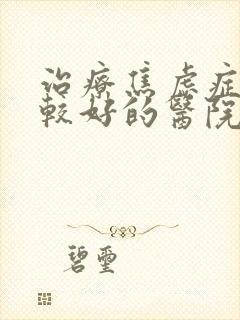 治療焦虑症
較好的醫院
碧璽